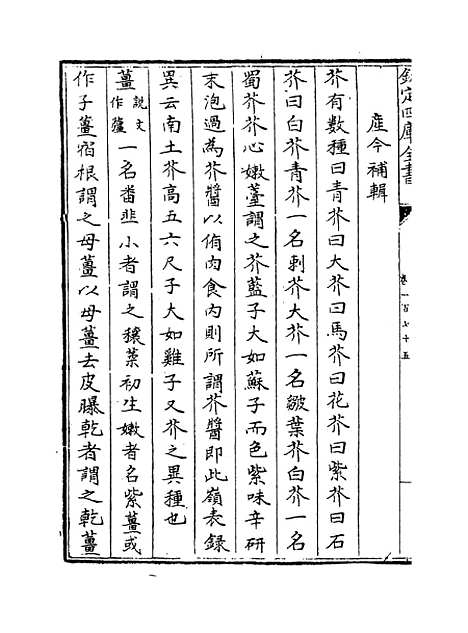 欽定四庫全書
卷一百七十五
産今補輯
芥有數種曰青芥曰大芥曰馬芥曰花芥曰紫芥曰石
芥曰白芥青芥一名刺芥大芥一名皺葉芥白芥一名
蜀芥芥心嫩薹謂之芥藍子大如蘇子而色紫味辛研
末泡過為芥醬以侑肉食内則所謂芥醬即此嶺表錄
異云南土芥高五六尺子大如雞子又芥之異種也
薑說文作䕬一名番韭小者謂之䕩葉初生嫩者名紫薑或
作子薑宿根謂之母薑以母薑去皮曝乾者謂之乾薑